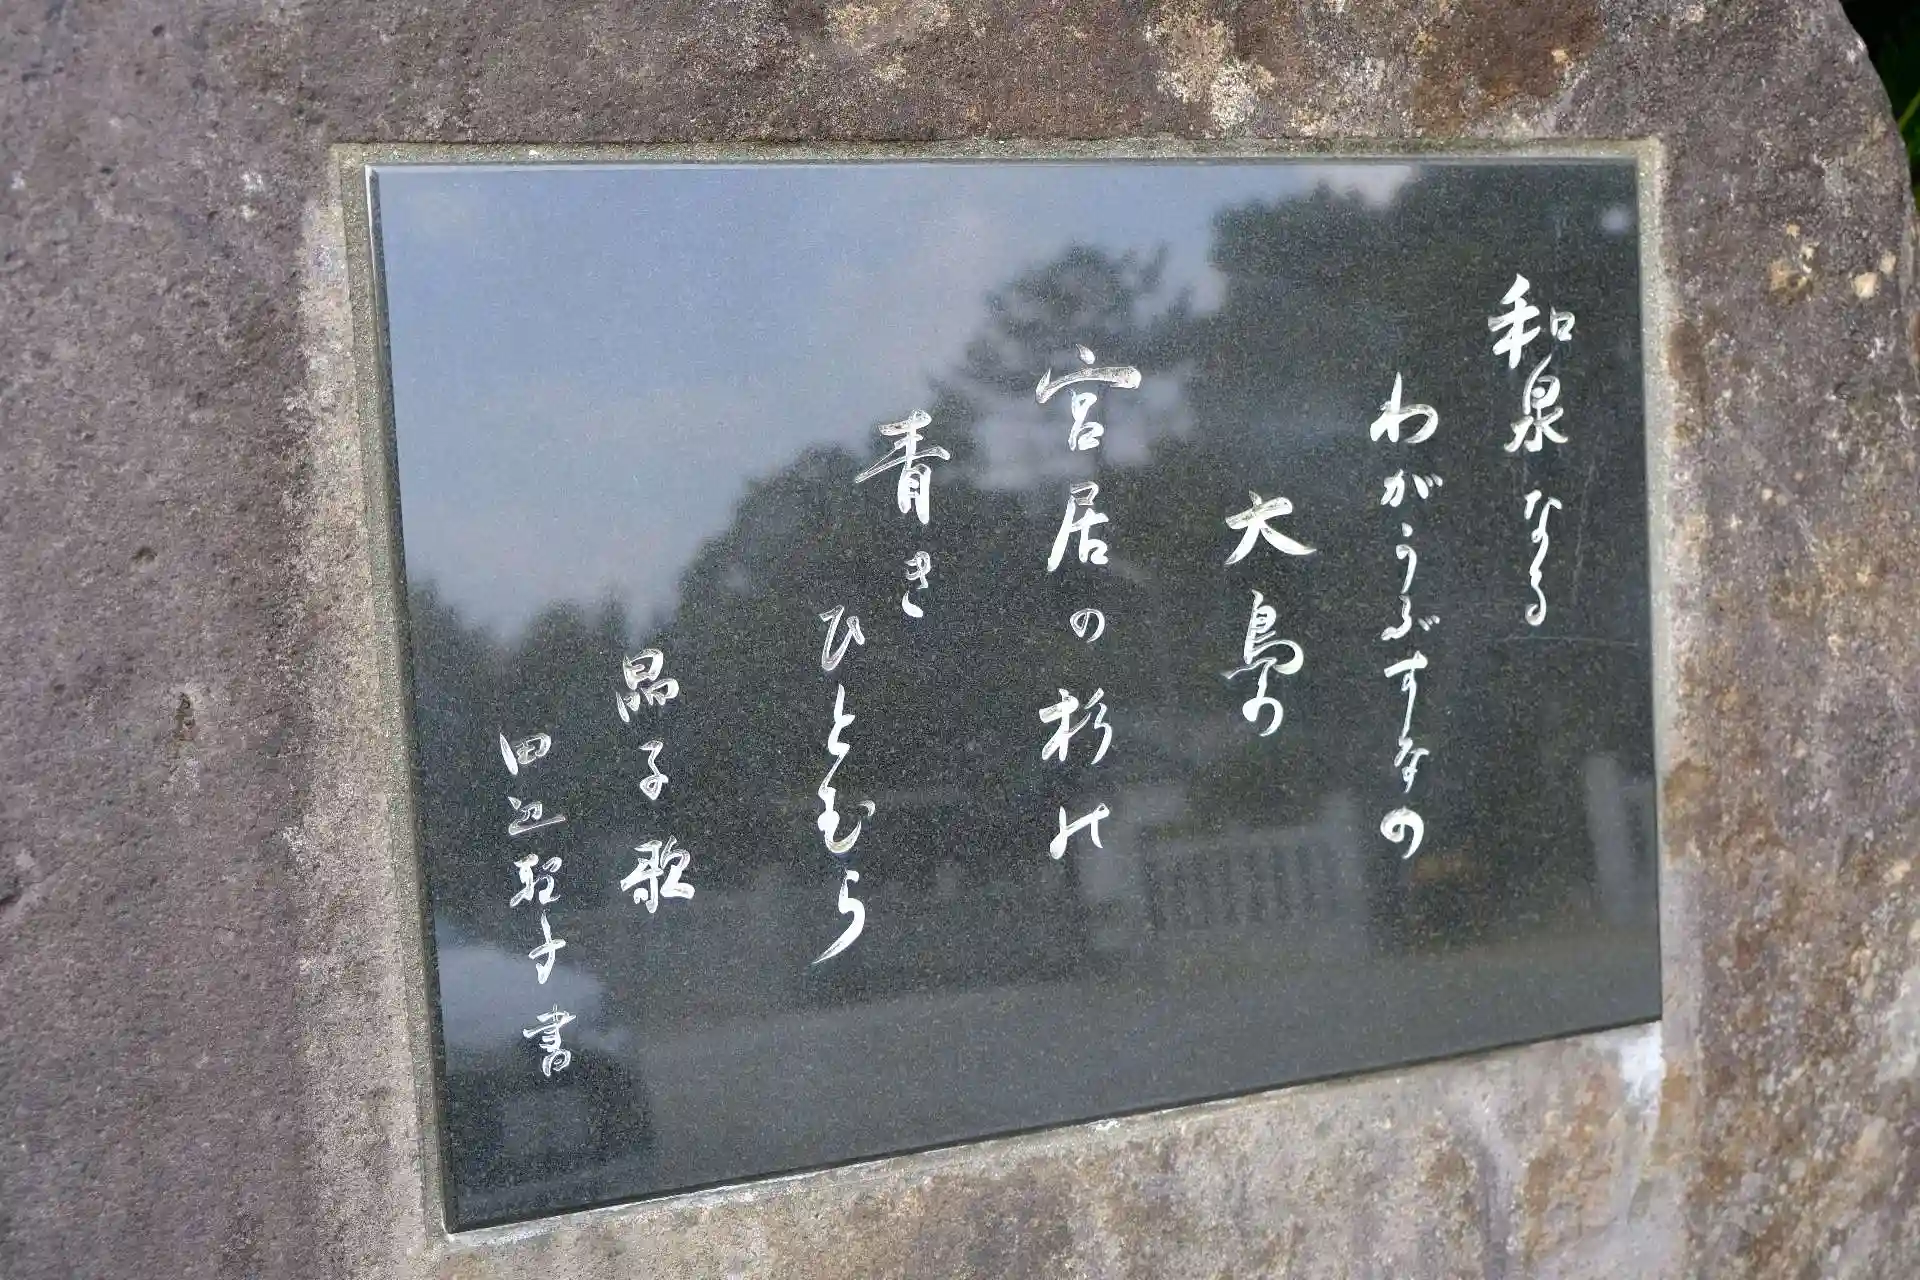 和泉なる
わがうぶすなの
大鳥の
宮居の杉の
青き
ひとむら
晶子歌
田辺聖子書